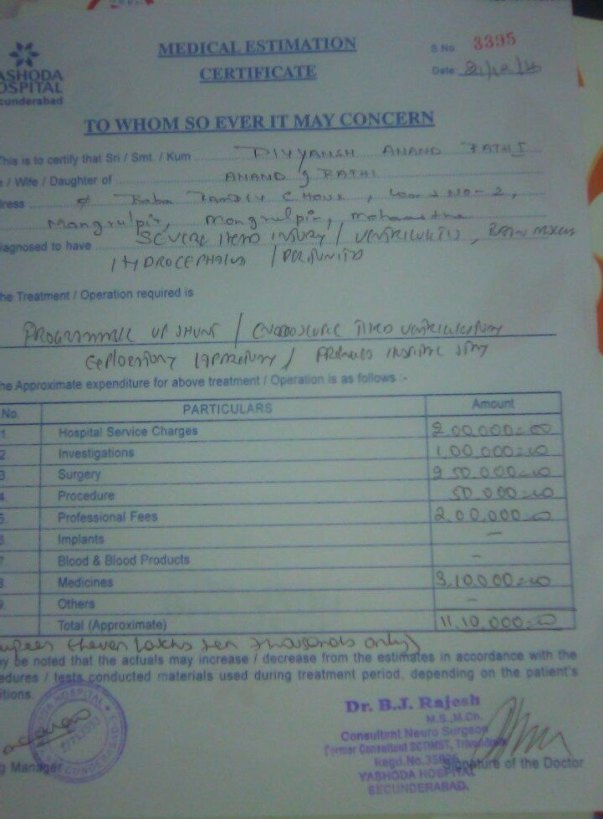 MEDICAL ESTIMATION
CERTIFICATE
S No. 3395
Date
ASHODA
OSPITAL
cunderabad
TO WHOM SO EVER IT MAY CONCERN
This is to certify that Sri / Smt. / Kum DIVYANSH ANAND RATHI
/ Wife / Daughter of ANAND J RATHI
ress
Mangrulpir, Mangrulpir, Maharastra
iagnosed to have SEVERE HEAD INJURY / VENTRICULITIS,
HYDROCEPHALUS / PERITONITIS
he Treatment / Operation is required is
PROGRAMMABLE VP SHUNT / ENDOSCOPIC THIRD VENTRICULOSTOMY
EXPLORATORY LAPAROTOMY / PROLONGED HOSPITAL STAY
he Approximate expenditure for above treatment / Operation is as follows :-
No. PARTICULARS Amount
1. Hospital Service Charges 2,00,000=00
2 Investigations 1,00,000=00
3 Surgery 2 50,000=00
4 Procedure 50,000=00
5. Professional Fees 2,00,000=0
6. Implants —
7. Blood & Blood Products -
8. Medicines 3,10,000=00
9. Others —
Total (Approximate) 11,10,000=0
upees Eleven Lakhs Ten Thousands only)
y be noted that the actuals may increase / decrease from the estimates in accordance with the
edures / tests conducted materials used during treatment period, depending on the patient's
itions
Dr. B.J. Rajesh
M.S.,M.Ch.
Consultant Neuro Surgeon
Former Consultant SCTIMST,
Regd.No.
YASHODA HOSPITAL
SECUNDERABAD.
g Manager
Signature of the Doctor